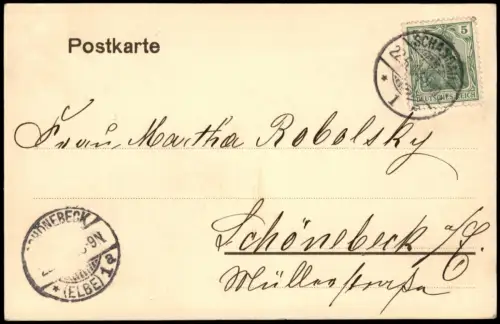 Postkarte
5
SCHANDAU
1
Frau Martha Robolsky
Schönebeck a/E.
Müllerstraße
SCHÖNEBECK
(ELBE) 1a